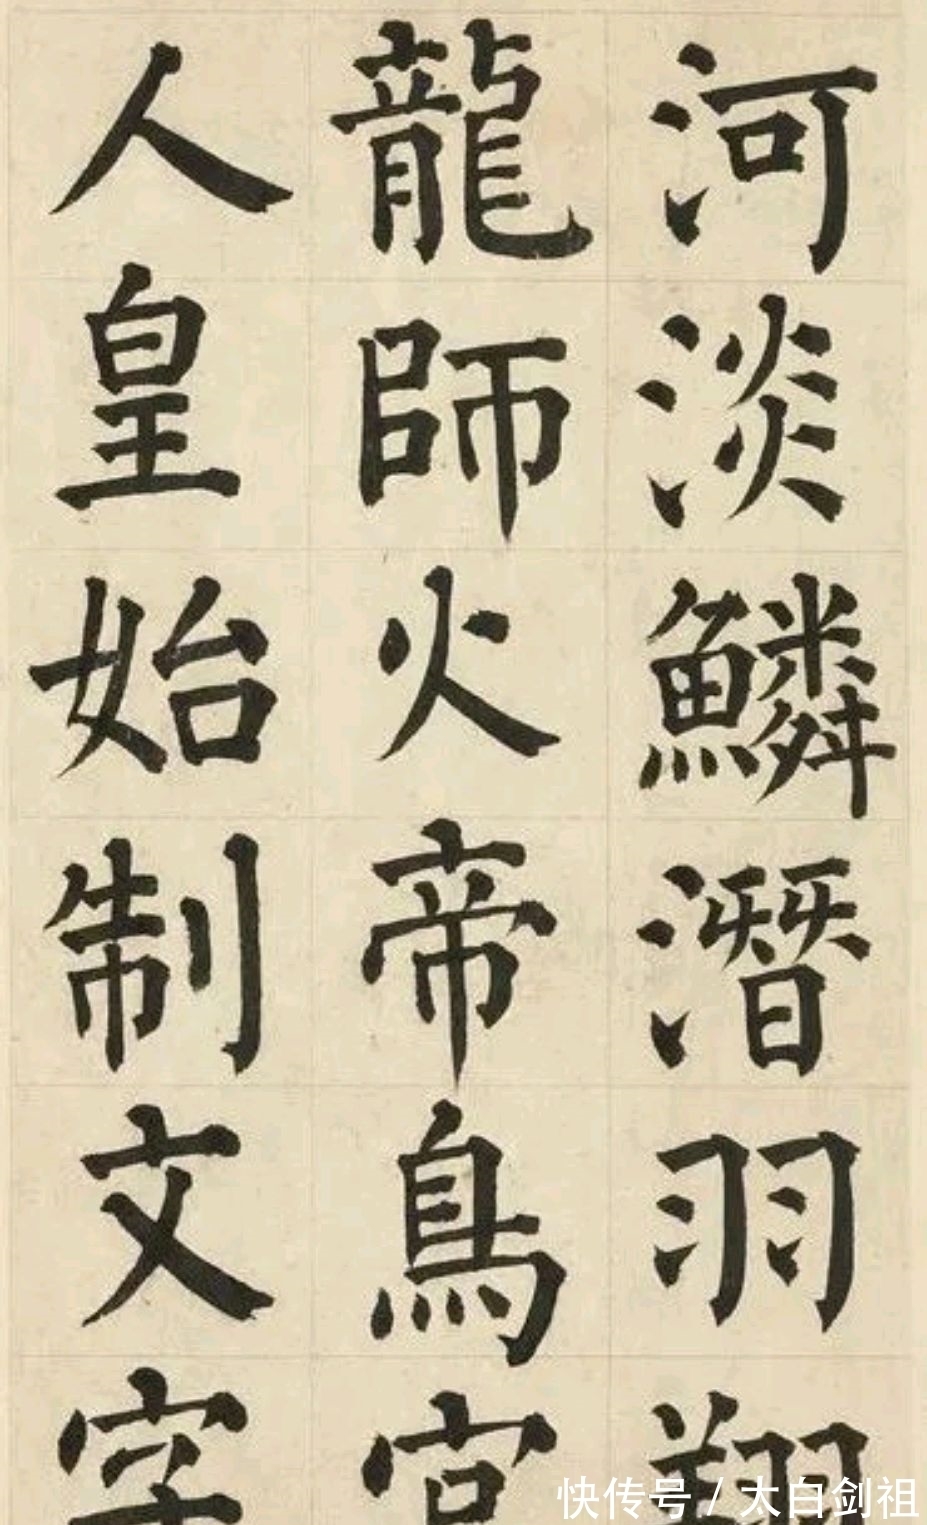 河淡鱗潛羽翔
龍師火帝鳥官
人皇始制文字
快传号 / 太白剑祖